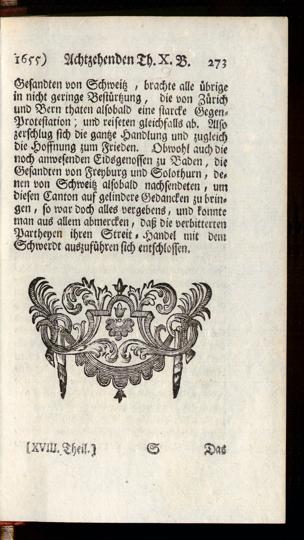 1655) Achtzehenden Th. X. B. 273
Gesandten von Schweitz, brachte alle übrige
in nicht geringe Bestürtzung, die von Zürich
und Bern thaten alsobald eine starcke Gegen-
Protestation; und reiseten gleichfalls ab. Also
zerschlug sich die gantze Handlung und zugleich
die Hoffnung zum Frieden. Obwohl auch die
noch anwesenden Eidsgenossen zu Baden, die
Gesandten von Freyburg und Solothurn, de-
nen von Schweitz alsobald nachsendeten, um
diesen Canton auf gelindere Gedancken zu brin-
gen, so war doch alles vergebens, und konnte
man aus allem abmercken, daß die verbitterten
Partheyen ihren Streit-Handel mit dem
Schwerdt auszuführen sich entschlossen.
[XVIII. Theil.] S Das